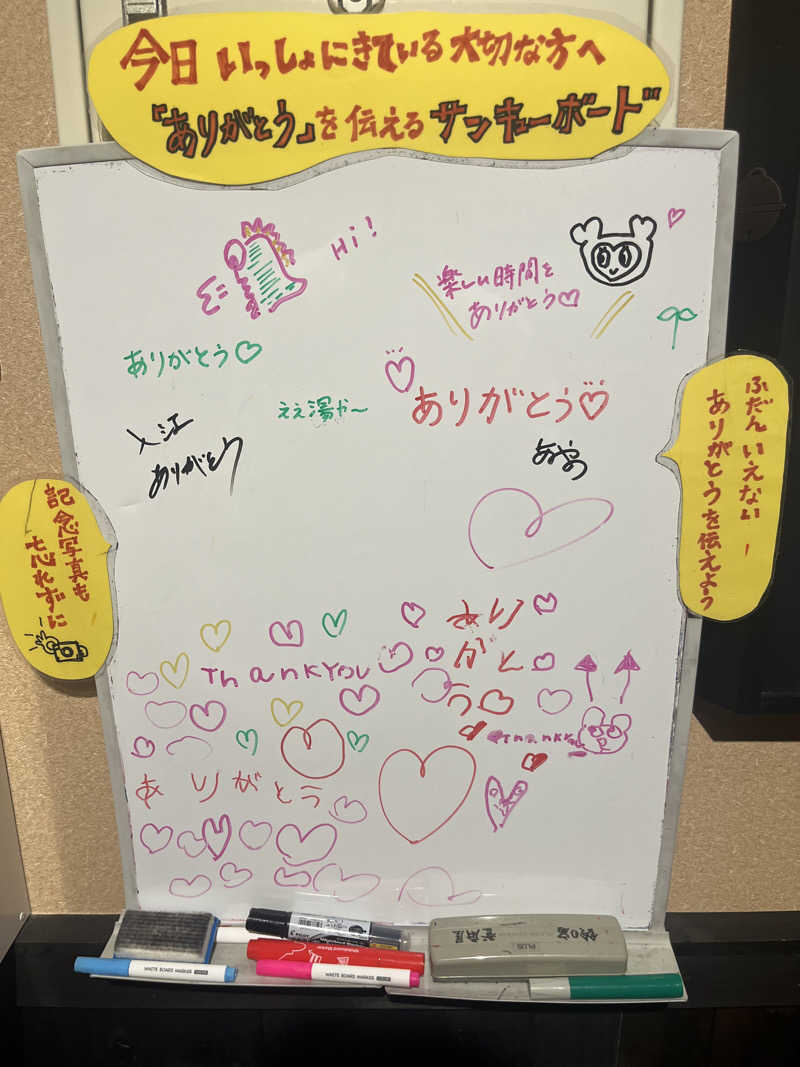 今日いっしょにきている大切な方へ
「ありがとう」を伝えるサンキューボード
Hi!
楽しい時間を
ありがとう♡
ありがとう♡
ええ湯や〜
ありがとう♡
入江
ありがとう
あやの
ふだんいえない
ありがとうを伝えよう
記念写真も
忘れずに
あり
がと
う
Thank You
Thank You
ありがとう
WHITE BOARD MARKER
WHITE BOARD MARKER
PLUS